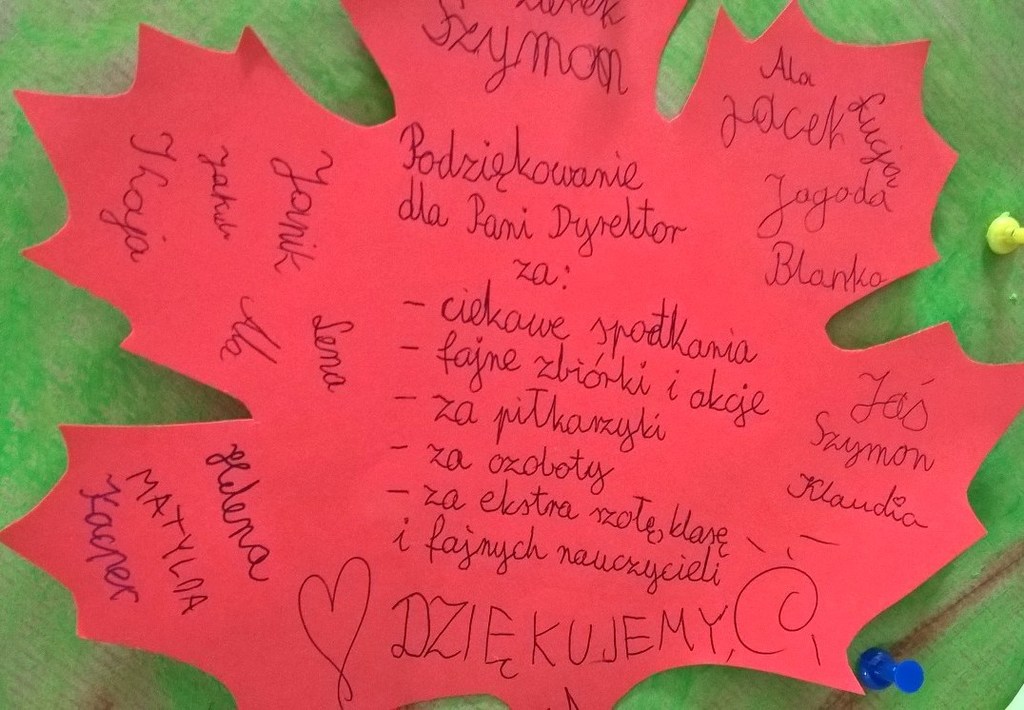 Szymon
Podziękowanie
dla Pani Dyrektor
za:
- ciekawe spodtkania
- fajne zbiórki i akcje
- za piłkarzyki
- za ozoboty
- za ekstra szołę, klasę
i fajnych nauczycieli
DZIĘKUJEMY,
Ala
Jacek
Łucja
Jagoda
Blanka
Jaś
Szymon
Klaudia
Janik
Jakub
Lena
Ala
Helena
MATYLDA
Kacper